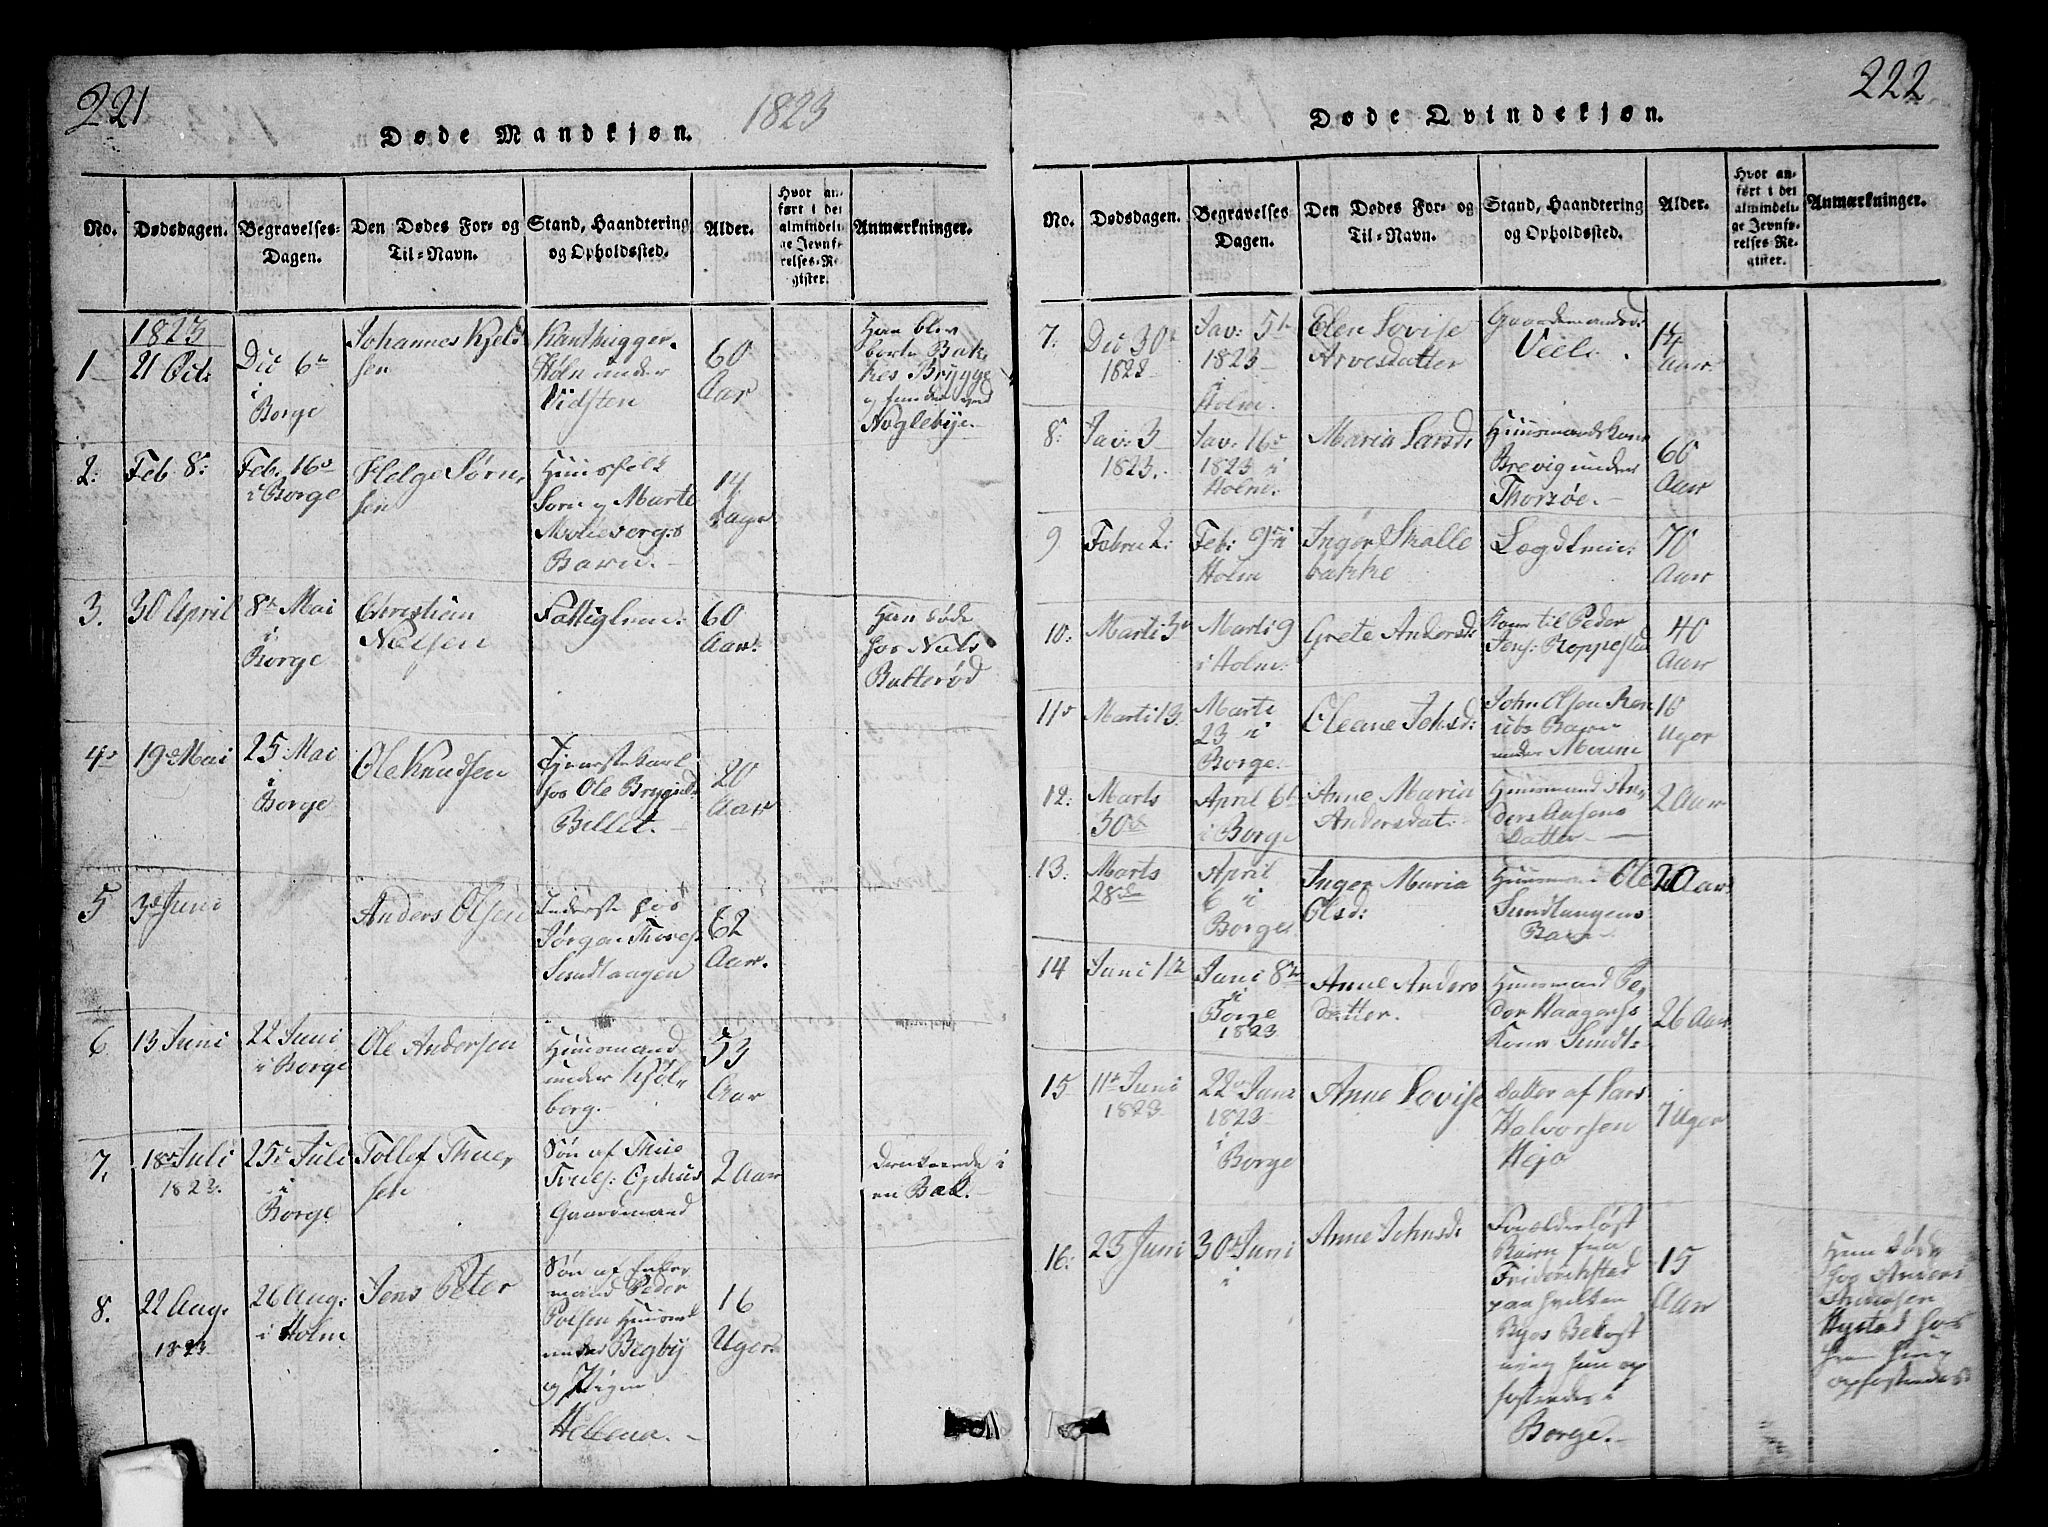 221
1823
Døde Mandkjøn.
No. Dødsdagen. Begravelses-Dagen. Den Dødes For- og Til-Navn. Stand, Haandtering og Opholdssted. Alder. Hvor anført i det almindelige Jevnførelses-Register. Anmærkninger.
1823
1 21 Oct: Dec 6te i Borge Johannes Kjeldsen Holn under Vidsten 60 Aar Han blev borte Bakkes Brygge og funden ved Hoglebye.
2: Feb 8: Feb. 16de i Borge Helge Sørensen Huusfolk Søren og Marte Moliesorgs Barn. 14 Dage
3. 30 April 8de Mai i Borge Christian Nielsen Fattiglem: 60 Aar: Han døde hos Niels Butterød
4. 19de Mai 25 Mai i Borge Ole Knudsen Tjenestekarl hos Ole Billet. 20 Aar
5 3de Juni Anders Olsen Inderste hos Jørgen Thoresen Sundlaagen 62 Aar.
6 13 Juni 22 Juni i Borge Ole Andersen Huusmand under Kjølberg. 53 Aar
7. 18de Juli 1823. 25de Juli i Borge Tollef Thuesen Søn af Thue Truls: Ophus Gaardmand 2 Aar druknede i en Bæk.
8. 22 Aug. 1823 26 Aug: i Holm Jens Peter Søn af Enkemand Peder Polsen Huusmd under Begby og Pigen Hellena. 16 Uger
222
Døde Qvindekjøn.
No. Dødsdagen. Begravelses Dagen. Den Dødes For- og Til-Navn. Stand, Haandtering og Opholdssted. Alder. Hvor anført i det almindelige Jevnførelses-Register. Anmærkninger.
7. Dec 30te 1822 Jav: 5te 1823 i Holm. Elen Lovise Arvesdatter Gaardmandsd: Viele. 14 Aar
8: Jav: 3 1823. Jav: 16de 1823 i Holm. Maria Larsd: Huusmandskone Brevig under Thorsøe. 60 Aar
9 Febru 2: Feb: 9de i Holm Inger Skallebakke Lægdslem: 70 Aar
10: Marti 3de Marti 9 i Holm: Grete Andersd: Kone til Peder Jens: Roppestad 40 Aar
11 Marti 13. Marti 23 i Borge Oleane Johsd: John Olsen Barn under Moum 10 Uger
12: Marts 30de April 6te i Borge Anne Maria Andersdat: Huusmand Anders Datter 2 Aar
13. Marts 28de April 6 i Borge Inger Maria Olsd: Huusmand Ole Sundlaagens Barn 20 Aar
14 Juni 1te Juni 8de i Borge 1823 Anne Andersdatter. Huusmand Peder Haagens: Kone Sundt: 26 Aar
15 11te Juni 1823. 22de Juni 1823 i Borge Anne Lovise Datter af Lars Halvorsen Hejo 7 Uger
16: 25 Juni 30te Juni i Anne Johnsd: Forældreløst Barn fra Friderichstad paa hvilken Byes Bekostning hun opfostredes i Borge. 15 Aar Hun døde hos Anders Thuesen Hystad hos hvem hun opfostredes